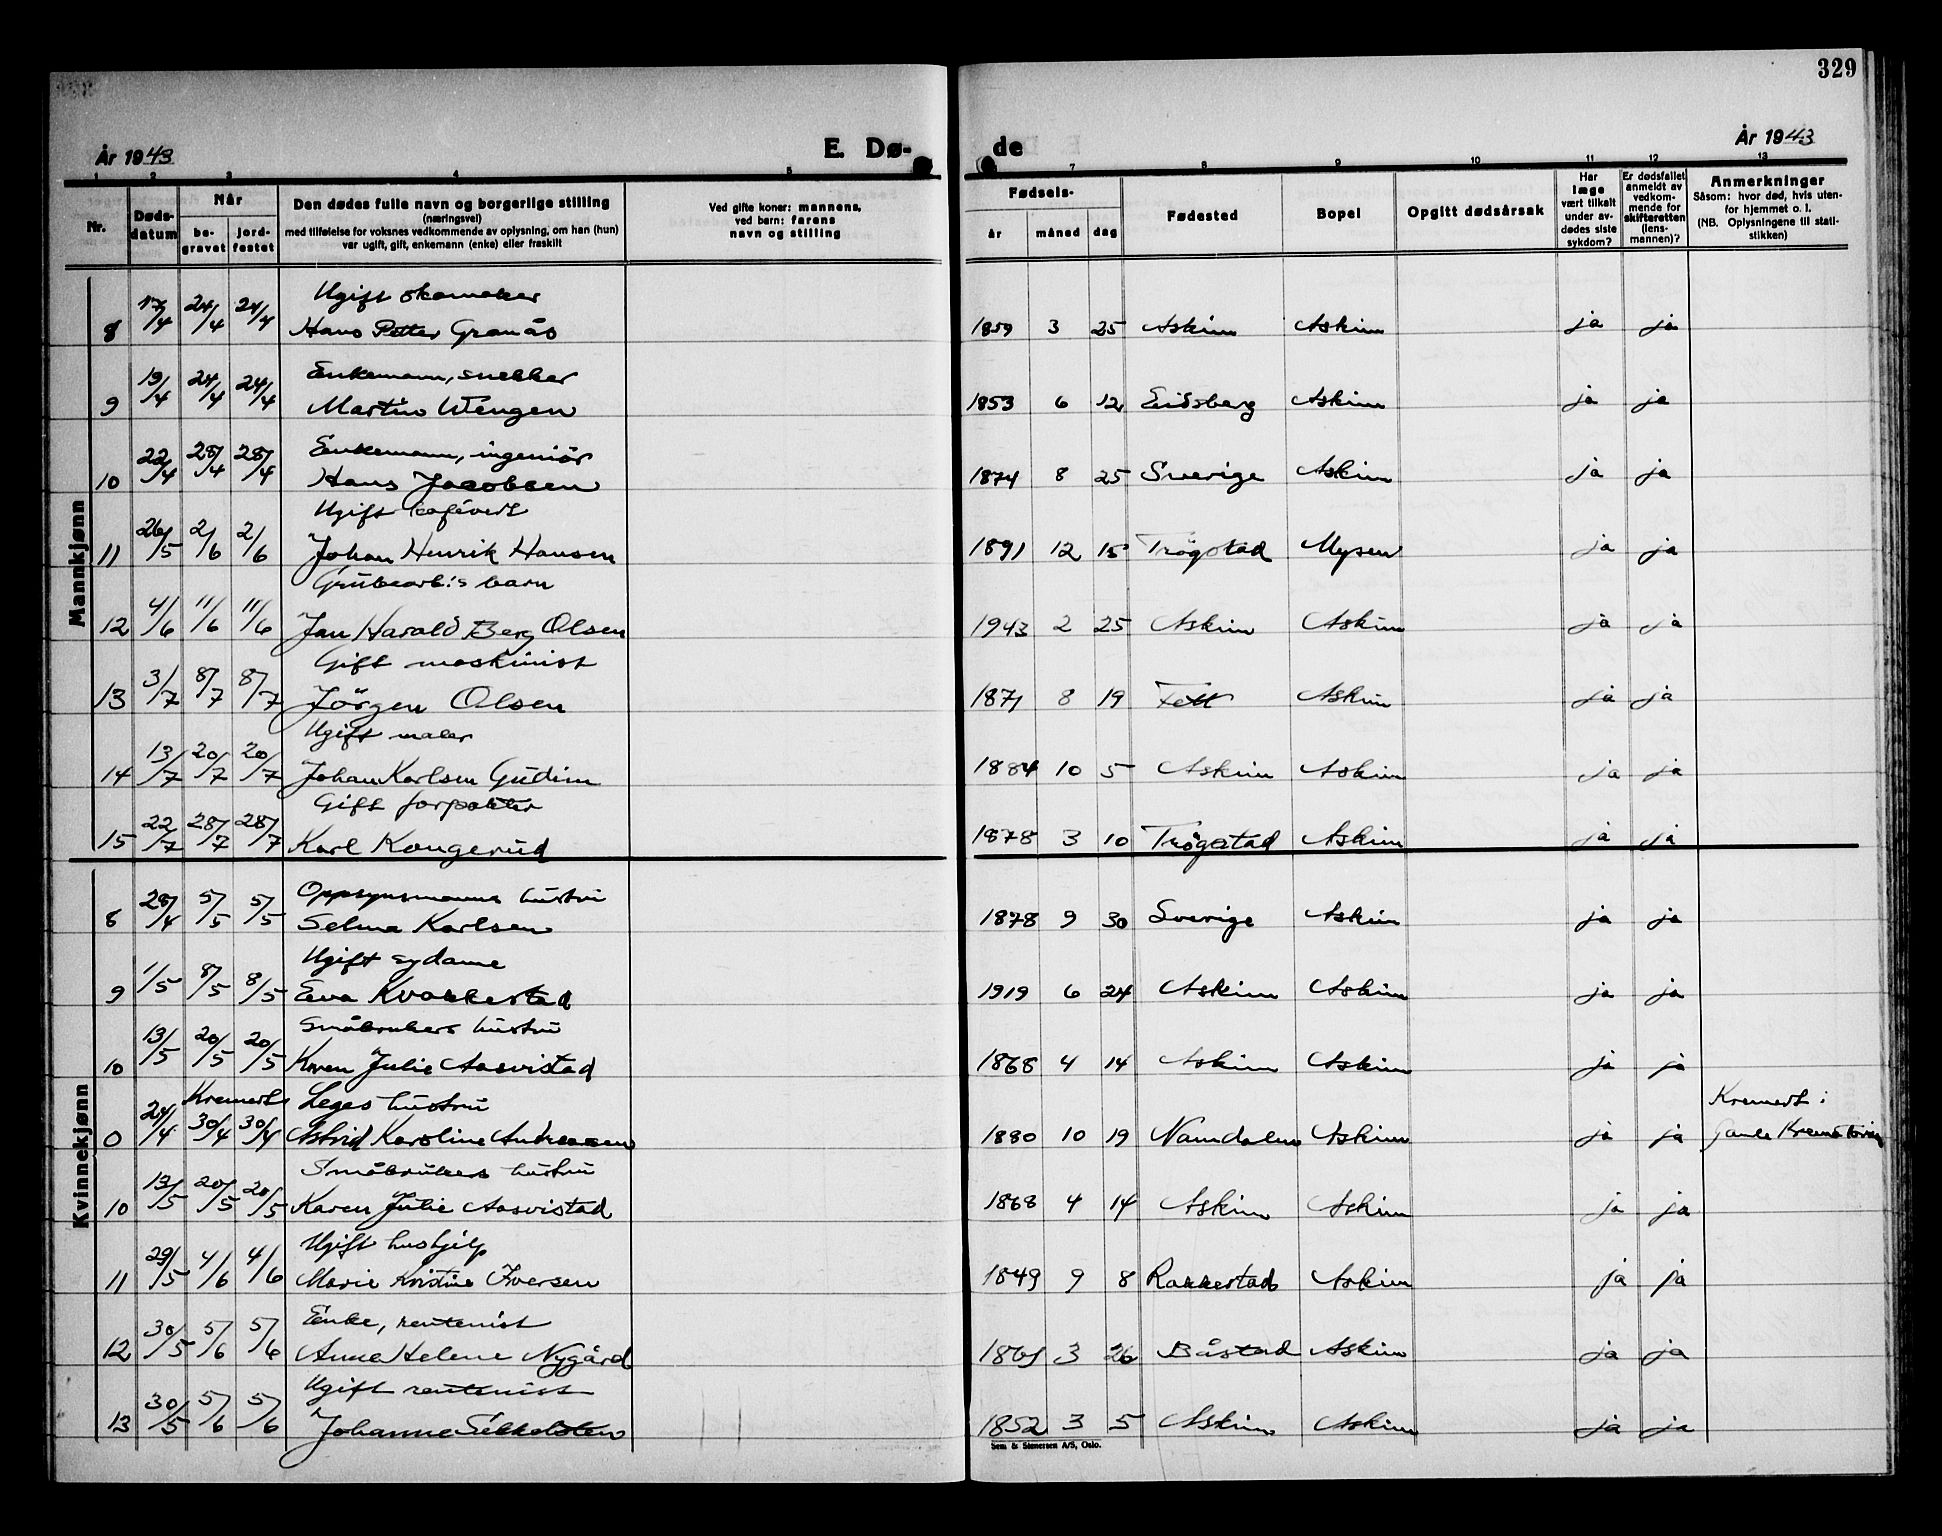 329
År 1943
E. Dø-
de
År 1943
1 2 3 4 5 7 8 9 10 11 12 13
Nr.
Døds-
datum
Når
be-
gravet
jord-
festet
Den dødes fulle navn og borgerlige stilling
(næringsvei)
med tilføielse for voksnes vedkommende av oplysning, om han (hun)
var ugift, gift, enkemann (enke) eller fraskilt
Ved gifte koner: mannens,
ved barn: farens
navn og stilling
Fødsels-
år måned dag
Fødested
Bopel
Opgitt dødsårsak
Har
læge
vært tilkalt
under av-
dødes siste
sykdom?
Er dødsfallet
anmeldt av
vedkom-
mende for
skifteretten
(lens-
mannen)?
Anmerkninger
Såsom: hvor død, hvis uten-
for hjemmet o. l.
(NB. Oplysningene til stati-
stikken)
Mannkjønn
Ugift skomaker
8 17/4 24/4 24/4 Hans Petter Granås 1859 3 25 Askim Askim ja ja
Enkemann, snekker
9 19/4 24/4 24/4 Martin Wengen 1853 6 12 Eidsberg Askim ja ja
Enkemann, ingeniör
10 22/4 28/4 28/4 Hans Jacobsen 1874 8 25 Sverige Askim ja ja
Ugift cafévert
11 26/5 2/6 2/6 Johan Henrik Hansen 1891 12 15 Trögstad Mysen ja ja
Grubearb:s barn
12 4/6 11/6 11/6 Jan Harald Berg Olsen 1943 2 25 Askim Askim ja ja
Gift maskinist
13 3/7 8/7 8/7 Jörgen Olsen 1871 8 19 Fett Askim ja ja
Ugift maler
14 13/7 20/7 20/7 Johan Karlsen Gudim 1884 10 5 Askim Askim ja ja
Gift forpakter
15 22/7 28/7 28/7 Karl Kongerud 1878 3 10 Trögstad Askim ja ja
Kvinnekjønn
Oppsynsmanns hustru
8 28/4 5/5 5/5 Selma Karlsen 1878 9 30 Sverige Askim ja ja
Ugift sydame
9 1/5 8/5 8/5 Eva Kvakkestad 1919 6 24 Askim Askim ja ja
Småbrukers hustru
10 13/5 20/5 20/5 Karen Julie Aasvistad 1868 4 14 Askim Askim ja ja
Kremert Leges hustru Kremert i
0 24/4 30/4 30/4 Astrid Karoline Andreassen 1880 10 19 Namdalen Askim ja ja Gamle Krematorium
Småbrukers hustru
10 13/5 20/5 20/5 Karen Julie Aasvistad 1868 4 14 Askim Askim ja ja
Ugift hushjelp
11 29/5 4/6 4/6 Marie Kristine Iversen 1849 9 8 Rakkestad Askim ja ja
Enke, rentenist
12 30/5 5/6 5/6 Anne Helene Nygård 1861 3 26 Båstad Askim ja ja
Ugift rentenist
13 30/5 5/6 5/6 Johanne Sekkelsten 1852 3 5 Askim Askim ja ja
Sem & Stenersen A/S, Oslo.